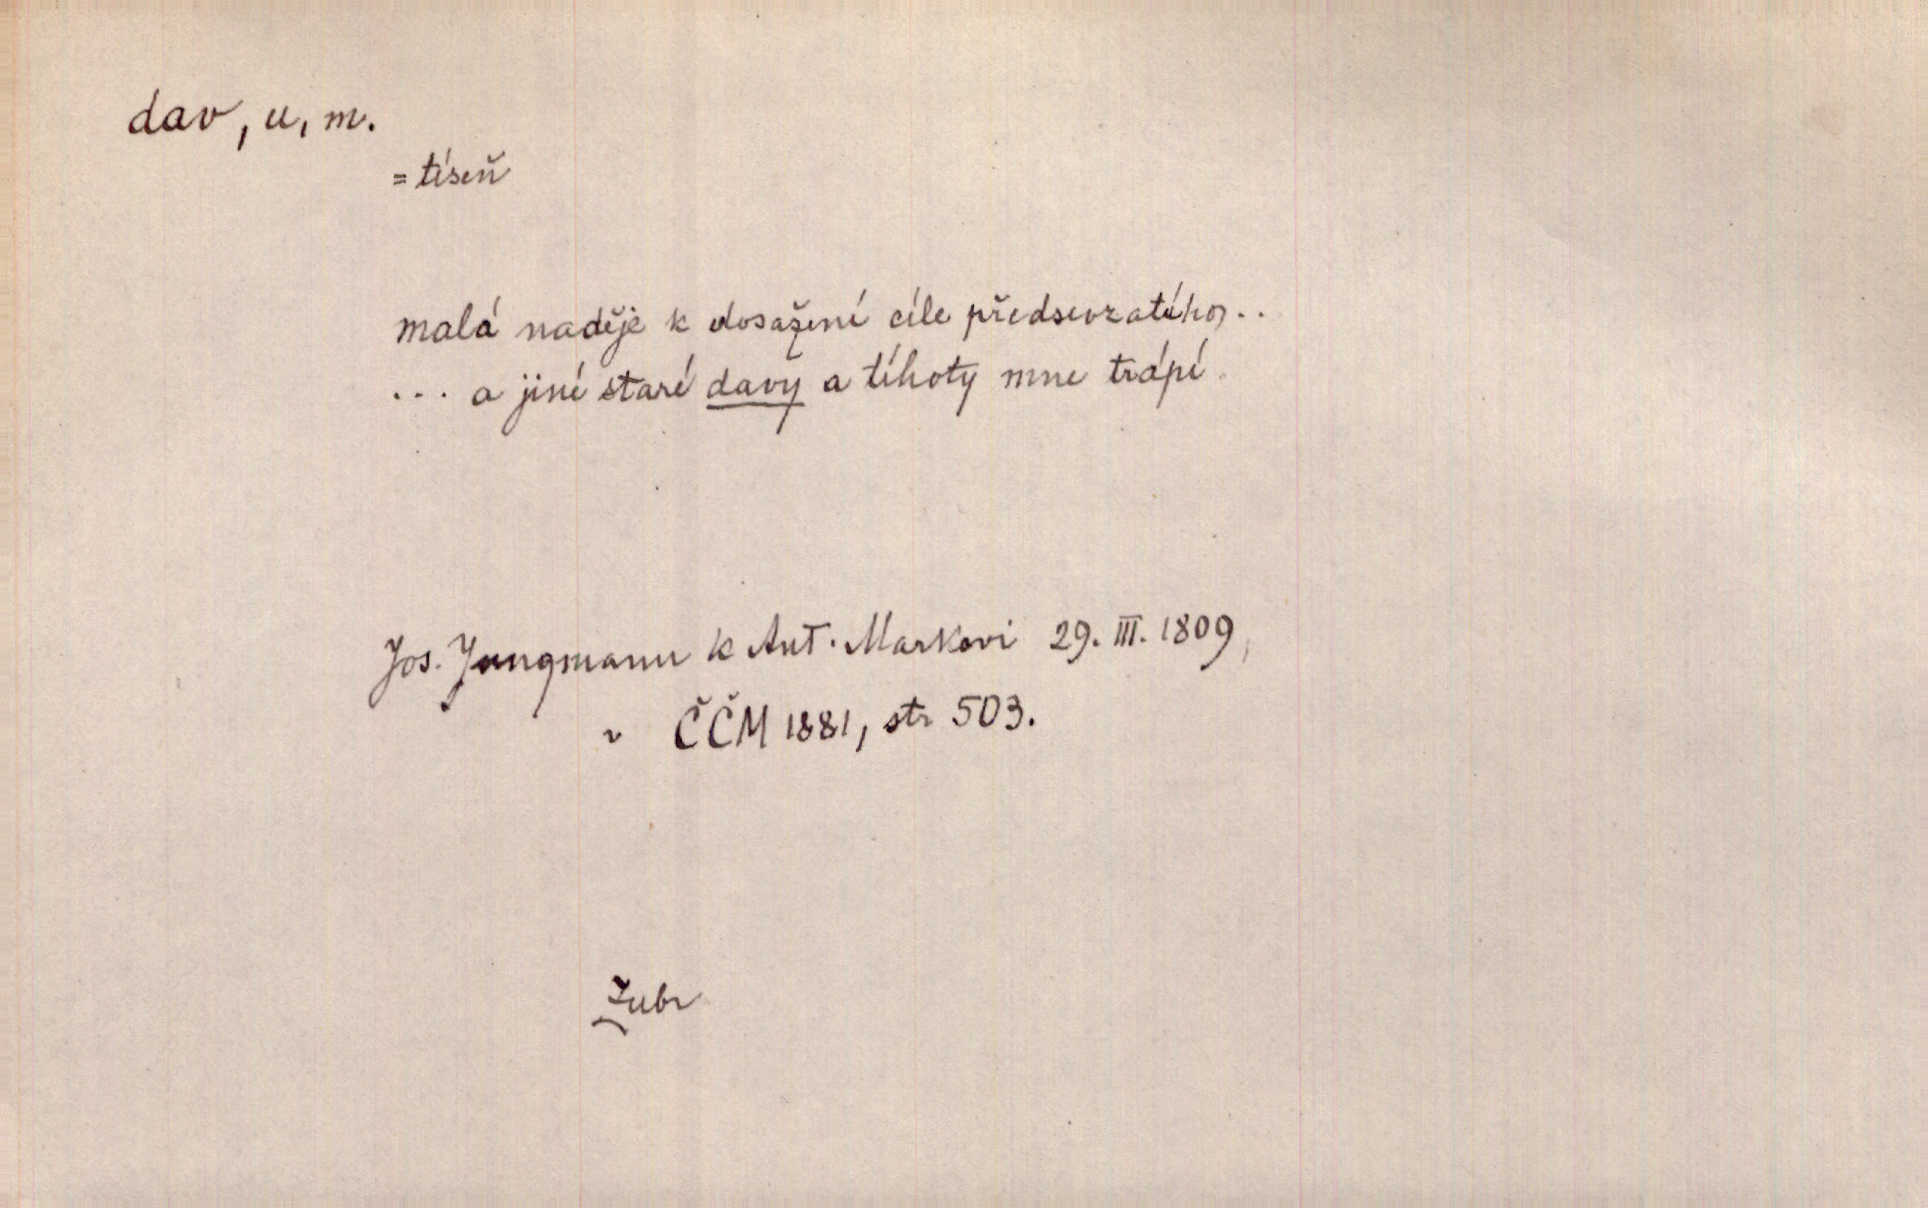 dav, u, m.
= tíseň
malá naděje k dosažení cíle předsevzatého, ..
... a jiné staré davy a tíhoty mne trápí.
Jos. Jungmann k Ant. Markovi 29. III. 1809,
v ČČM 1881, str 503.
Zubr